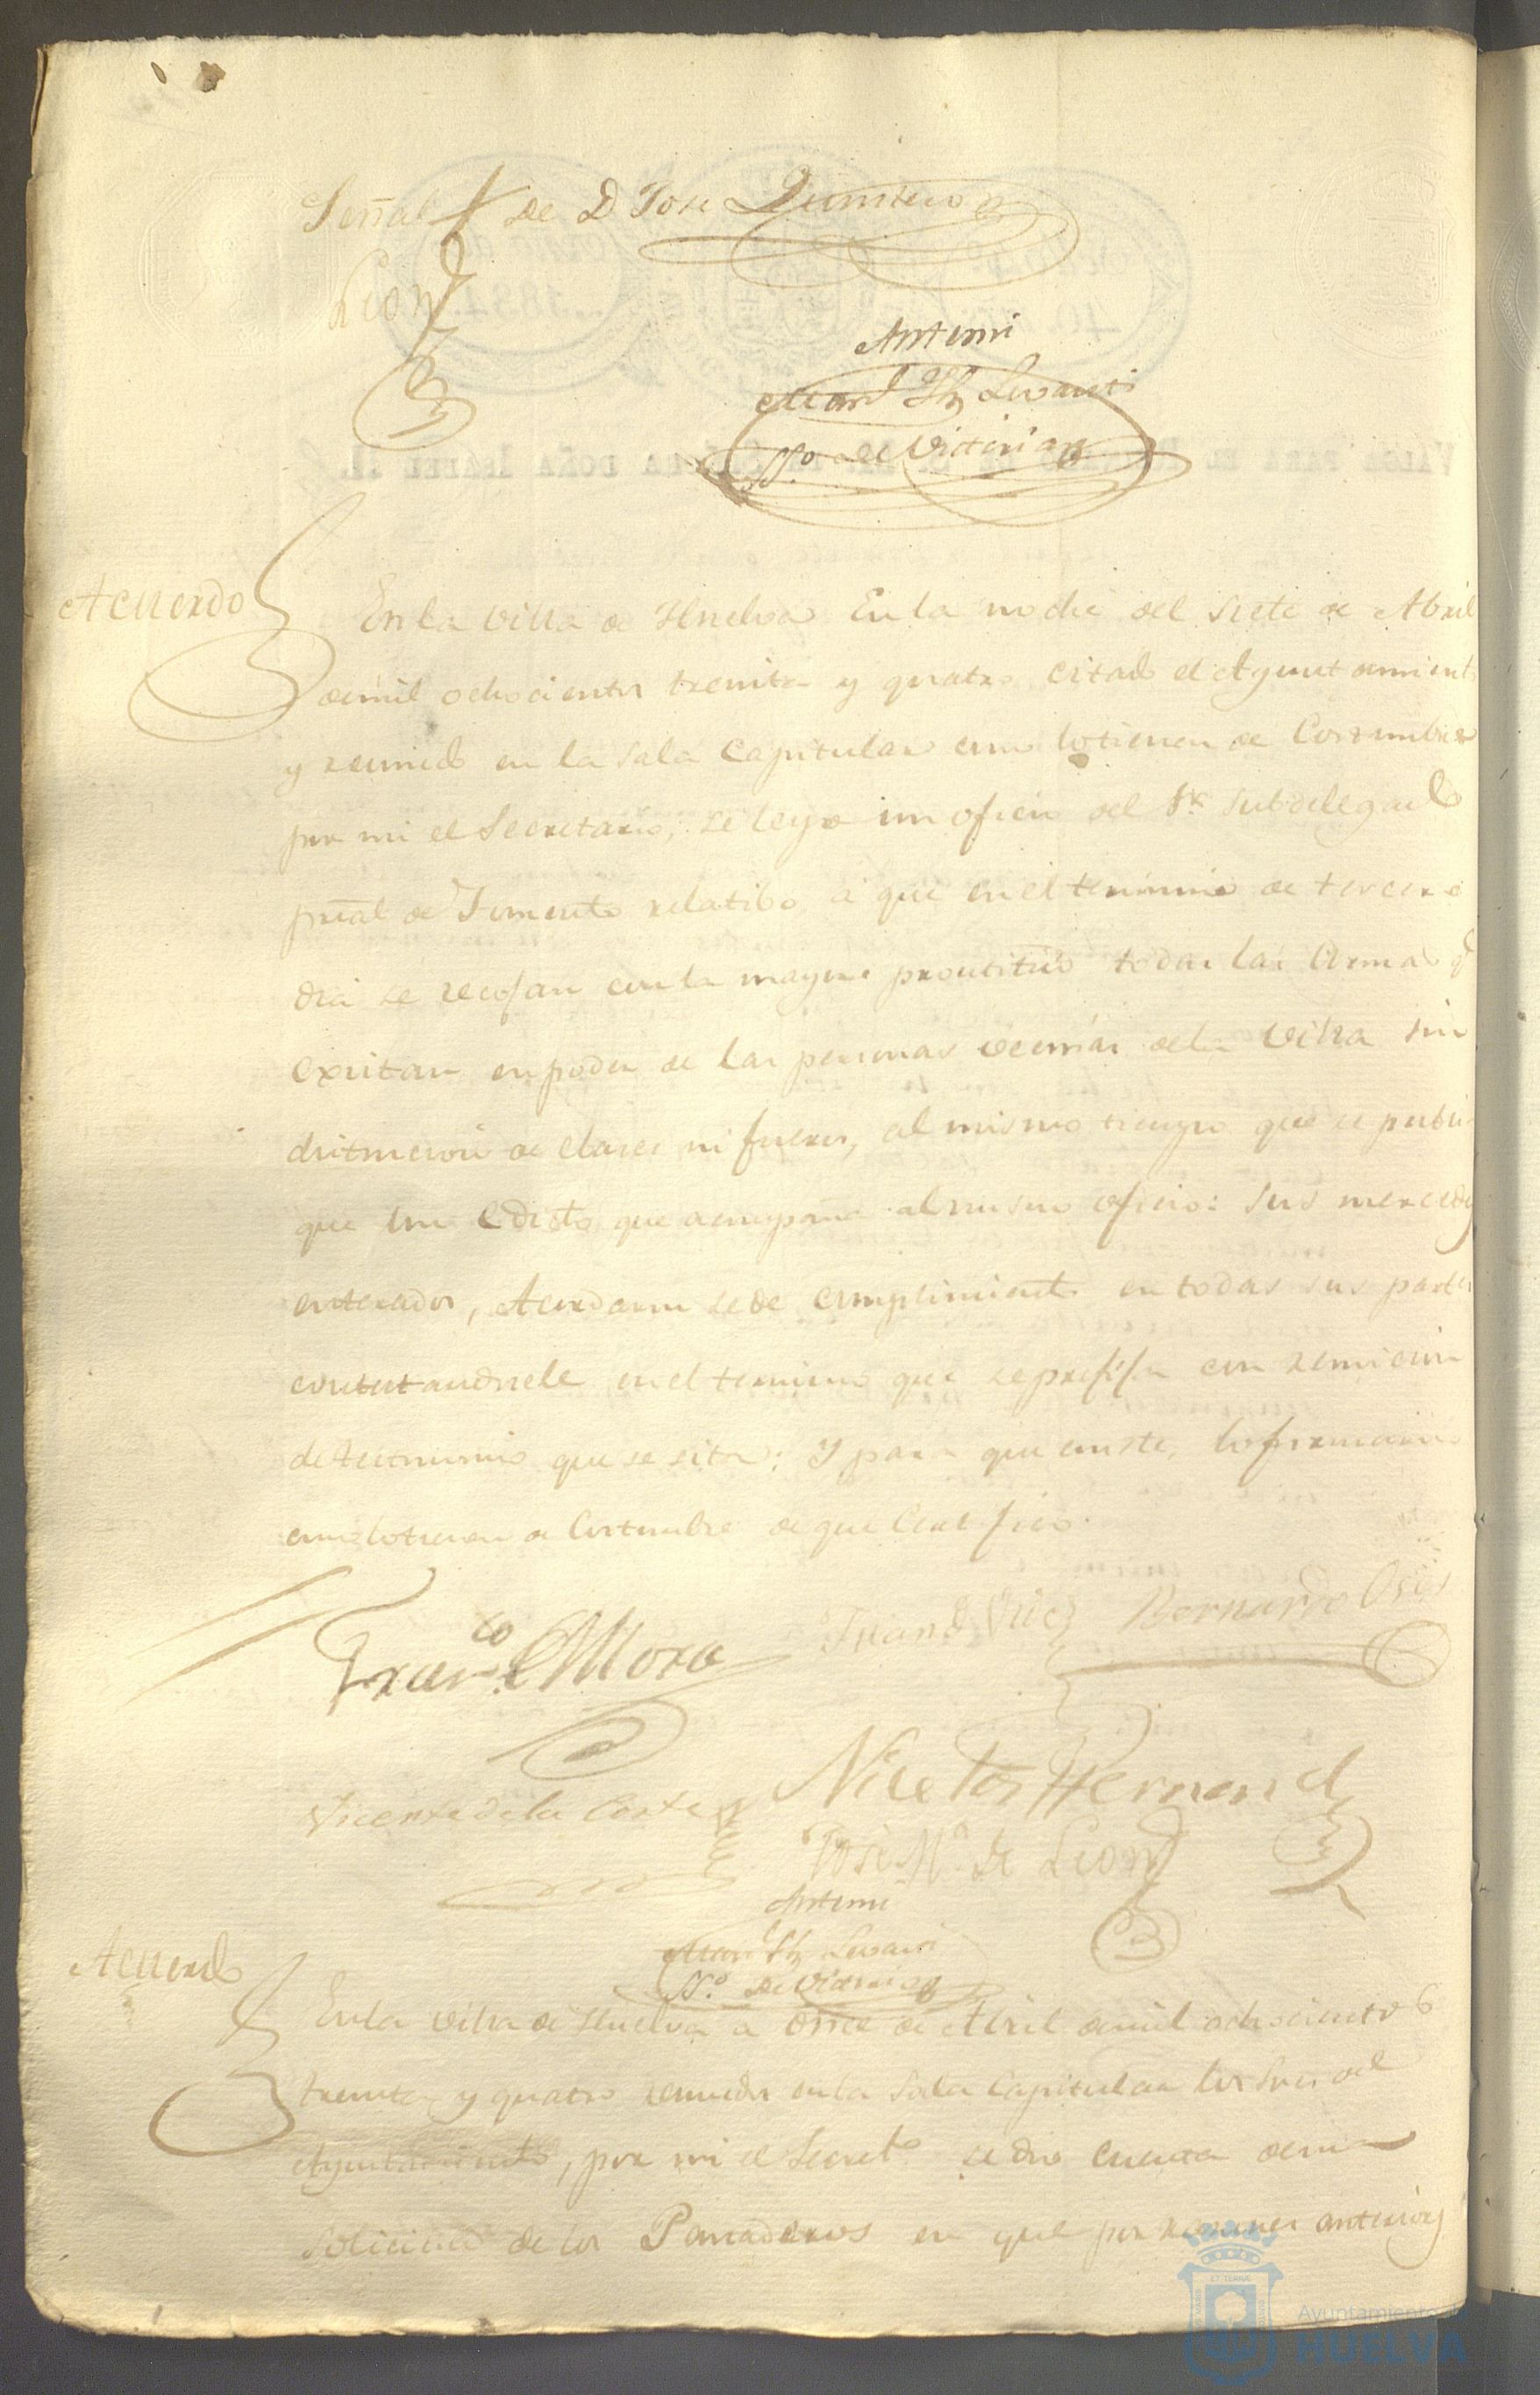 Señal + de D Jose Quintero
Leon
Antemi
SSº de Victorica
Acuerdo
En la Villa de Huelva En la noche del siete de Abril
de mil ochocientos treinta y quatro citado el Ayuntamiento
y reunido en la sala Capitular como lo tienen de Costumbre
por mi el Secretario, se leyo un oficio del Sr. Subdelegado
pral de Fomento relatibo a que en el termino de tercero
dia se recojan con la mayor prontitud todas las Armas q
existan en poder de las personas vecinas de la Villa sin
distincion de clases ni fueros, al mismo tiempo que se publi
que un Edicto que acompaña al mismo oficio: Sus mercedes
enterados, Acordaron se de cumplimiento en todas sus partes
contestandosele en el termino que se prefija con remicion
de testimonio que se cita; Y para que conste, lo firmaron
como lo tienen de Costumbre de que Certifico.
Franco Mora
Juan Diez
Bernardo
Vicente de la Corte
Nicetos Hernand
Jose Mª de Leon
Antemi
SSº de Victorica
Acuerdo
En la Villa de Huelva a Once de Abril de mil ochocientos
treinta y quatro reunidos en la Sala Capitular los Sres del
Ayuntamiento, por mi el Secretº se dio cuenta de una
solicitud de los Panaderos en que por razones anteriores
VALGA PARA EL REINADO DE S. M. LA SEÑORA DOÑA ISABEL II.
Ayuntamiento de
HUELVA